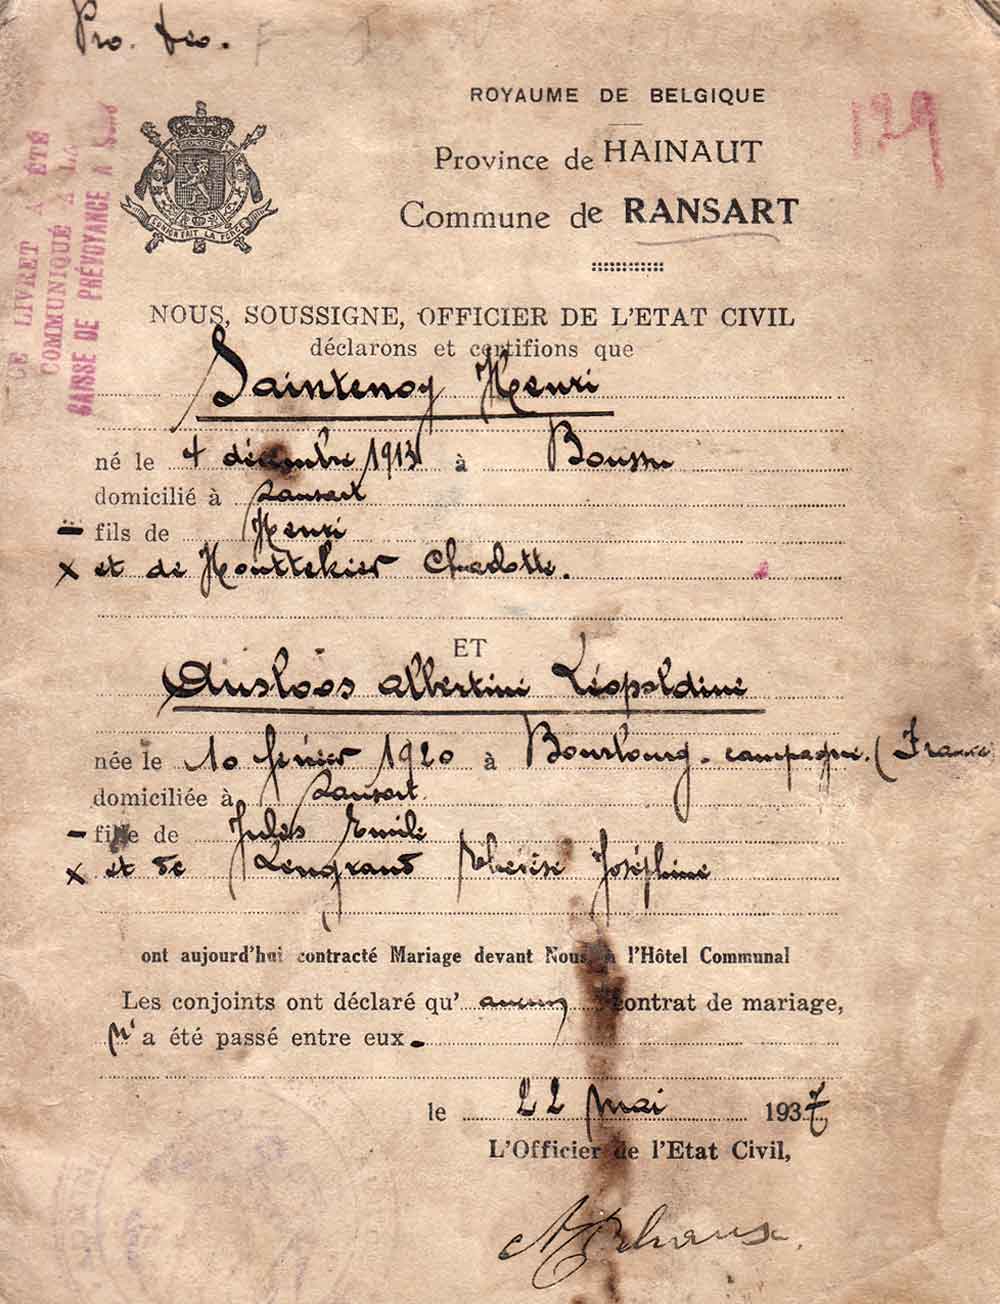 Pro. deo.
129
CE LIVRET A ÉTÉ
COMMUNIQUÉ A LA
CAISSE DE PRÉVOYANCE A
L'UNION FAIT LA FORCE
ROYAUME DE BELGIQUE
Province de HAINAUT
Commune de RANSART
NOUS, SOUSSIGNE, OFFICIER DE L'ETAT CIVIL
déclarons et certifions que
Saintenoy Henri
né le 4 décembre 1913 à Boussu
domicilié à Ransart
- fils de Henri
x et de Houttekier Charlotte.
ET
Ausloos Albertine Léopoldine
née le 10 février 1920 à Bourbourg-campagne. (France)
domiciliée à Ransart.
- fille de Jules Emile
x et de Lengrand Thérèse Joséphine
ont aujourd'hui contracté Mariage devant Nous à l'Hôtel Communal
Les conjoints ont déclaré qu' aucun contrat de mariage,
n' a été passé entre eux.
le 22 mai 1937
L'Officier de l'Etat Civil,